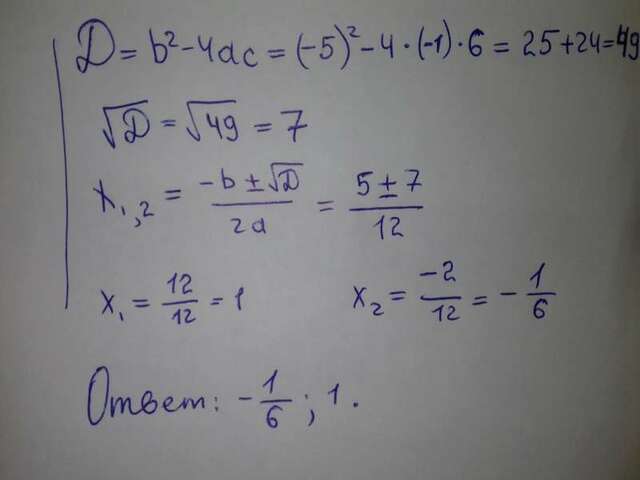 D = b² - 4ac = (-5)² - 4 · (-1) · 6 = 25 + 24 = 49
√D = √49 = 7
x₁,₂ = (-b ± √D)/(2a) = (5 ± 7)/12
x₁ = 12/12 = 1 x₂ = -2/12 = -1/6
Ответ: -1/6; 1.